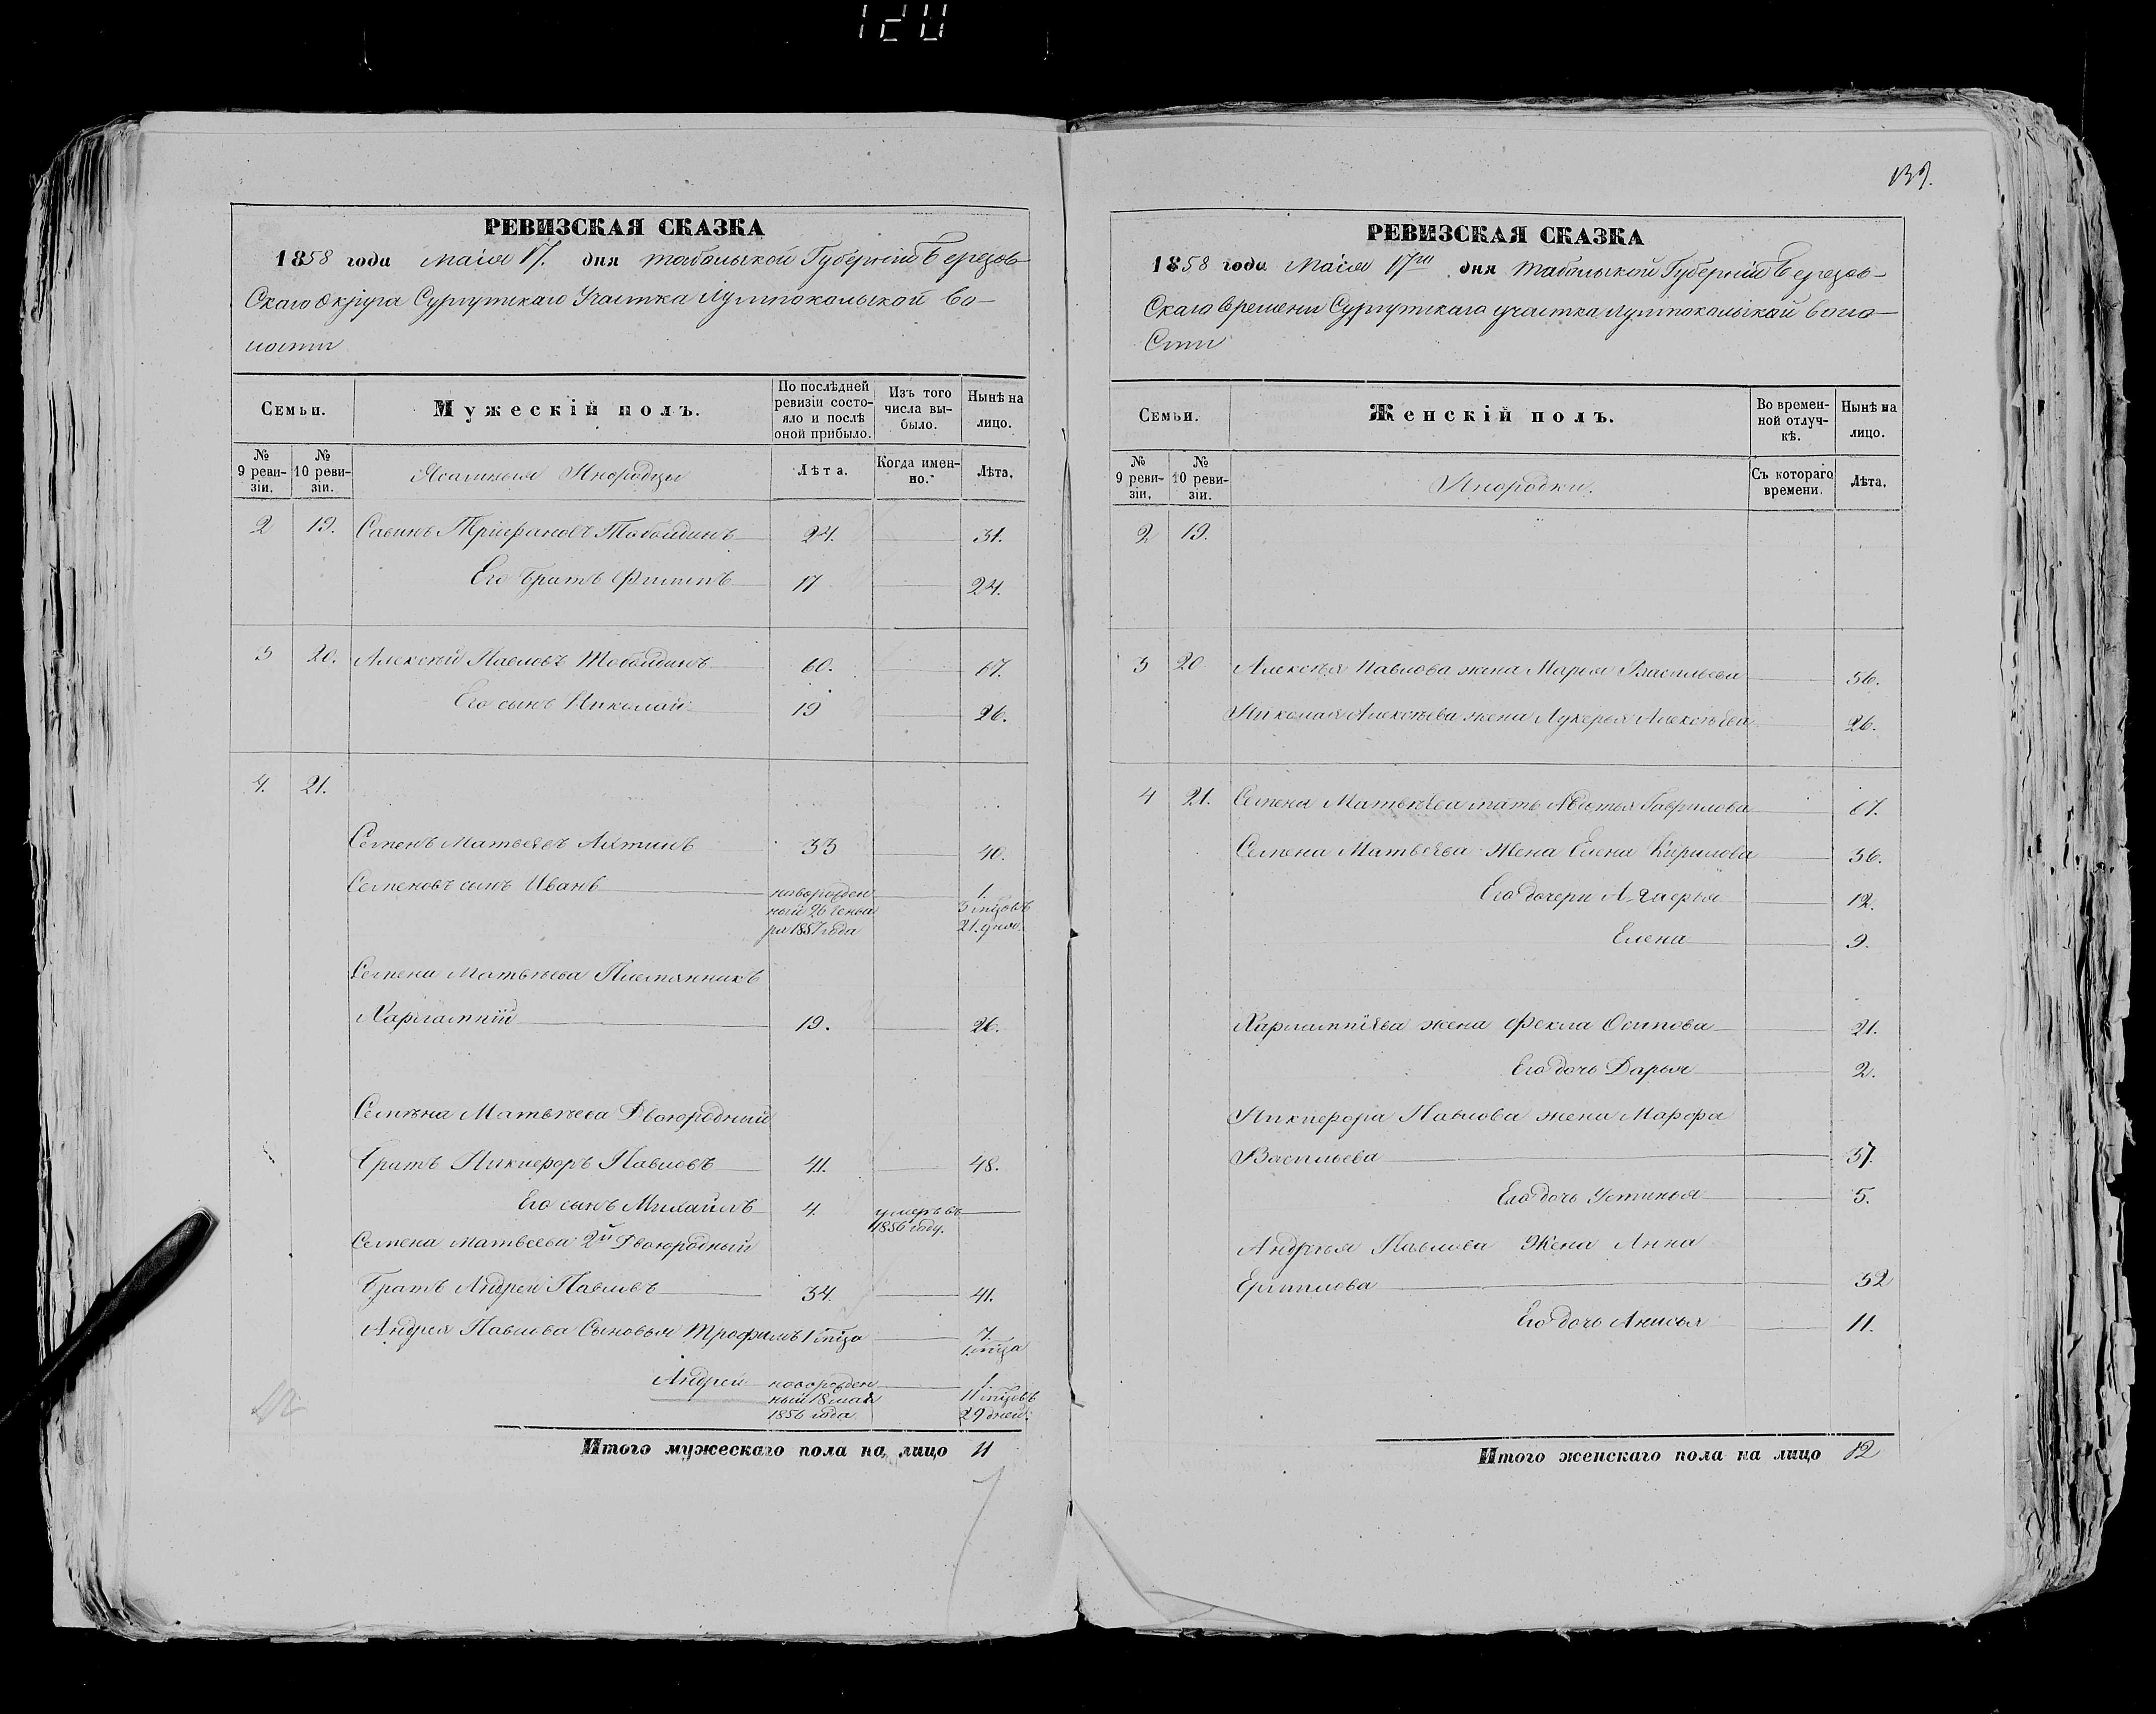 120
РЕВИЗСКАЯ СКАЗКА
1858 года Маія 17. дня Табольской Губерніи Березов-
Скаго округа Сургутскаго Участка Лумпокольской во-
лости
Семьи.
Мужескій полъ.
По послѣдней ревизіи состояло и послѣ оной прибыло.
Изъ того числа выбыло.
Нынѣ на лицо.
№ 9 ревизіи.
№ 10 ревизіи.
Ясашныя Инородцы
Лѣта.
Когда именно.
Лѣта.
2 19. Савинъ Трифановъ 24. 31.
Его братъ Филипъ 17 24.
3 20. Алексѣй Павловъ 60. 67.
Его сынъ Николай 19 26.
4. 21.
Семенъ Матвеевъ 33 40.
Семеновъ сынъ Иванъ новорожден 1.
ный 26 генва 3 мѣсовъ
ря 1857 года 21. дня.
Семена Матвѣева Племянникъ
Харлампій 19. 26.
Семѣна Матвѣева Двоюродный
братъ Никифоръ Павловъ 41. 48.
Его сынъ Михайлъ 4. умеръ въ
1856 году.
Семена Матвеева 2й Двоюродный
братъ Андрей Павловъ 34. 41.
Андрея Павлова Сыновья Трофимъ 1 мѣца 7.
1 мѣца
Андрей новорожден 1.
ный 18 мая 11 мѣсовъ
1856 года 29 дней.
Итого мужескаго пола на лицо 11
139.
РЕВИЗСКАЯ СКАЗКА
1858 года Маія 17го дня Табольской Губерніи Березов-
Скаго времени Сургутскаго участка Лумпокольской воло-
Сти
Семьи.
Женскій полъ.
Во временной отлучкѣ.
Нынѣ на лицо.
№ 9 ревизіи.
№ 10 ревизіи.
Инородки.
Съ котораго времени.
Лѣта.
2 19.
3 20 Алексѣя Павлова жена Марья Васильева 56.
Николая Алексѣева жена Лукерья Алексѣева 26.
4 21. Семена Матвѣева мать Авдотья Гаврилова 67.
Семена Матвѣева Жена Елена Кирилова 36.
Его дочери 12.
Елена 9.
Харлампіева жена Фекла Осипова 21.
Его дочь Дарья 2.
Никифора Павлова жена Марфа
Васильева 37.
Его дочь Устинья 5.
Андрѣя Павлова Жена Анна
Ермилова 32
Его дочь Анисья 11.
Итого женскаго пола на лицо 12